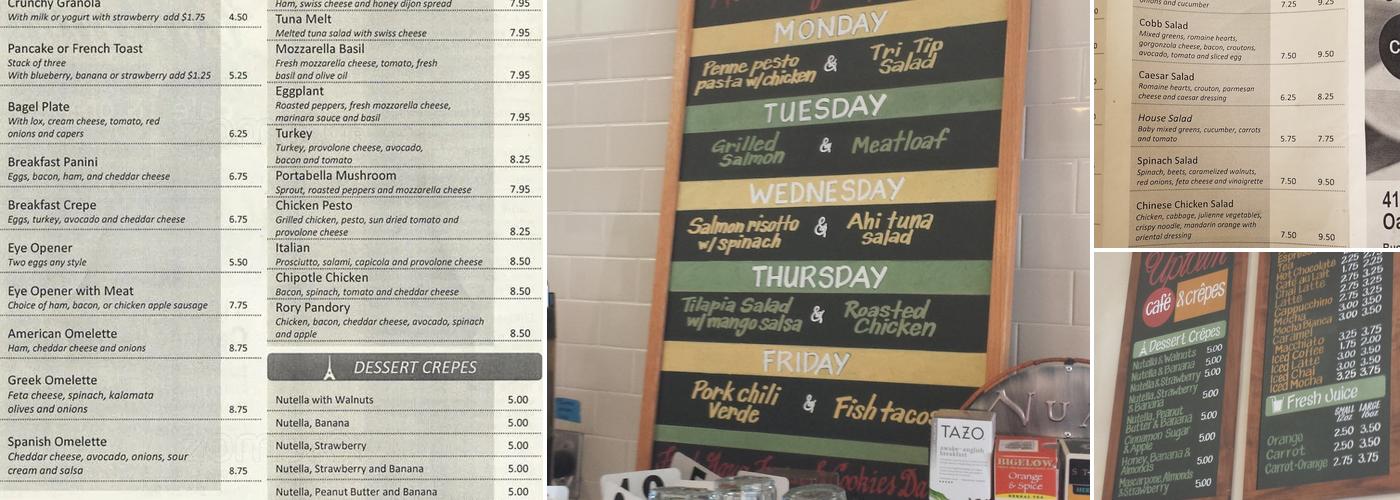 Crunchy Granola
With milk or yogurt with strawberry add $1.75 4.50
Pancake or French Toast
Stack of three
With blueberry, banana or strawberry add $1.25 5.25
Bagel Plate
With lox, cream cheese, tomato, red
onions and capers 6.25
Breakfast Panini
Eggs, bacon, ham, and cheddar cheese 6.75
Breakfast Crepe
Eggs, turkey, avocado and cheddar cheese 6.75
Eye Opener
Two eggs any style 5.50
Eye Opener with Meat
Choice of ham, bacon, or chicken apple sausage 7.75
American Omelette
Ham, cheddar cheese and onions 8.75
Greek Omelette
Feta cheese, spinach, kalamata
olives and onions 8.75
Spanish Omelette
Cheddar cheese, avocado, onions, sour
cream and salsa 8.75
Ham, swiss cheese and honey dijon spread 7.95
Tuna Melt
Melted tuna salad with swiss cheese 7.95
Mozzarella Basil
Fresh mozzarella cheese, tomato, fresh
basil and olive oil 7.95
Eggplant
Roasted peppers, fresh mozzarella cheese,
marinara sauce and basil 7.95
Turkey
Turkey, provolone cheese, avocado,
bacon and tomato 8.25
Portabella Mushroom
Sprout, roasted peppers and mozzarella cheese 7.95
Chicken Pesto
Grilled chicken, pesto, sun dried tomato and
provolone cheese 8.25
Italian
Prosciutto, salami, capicola and provolone cheese 8.50
Chipotle Chicken
Bacon, spinach, tomato and cheddar cheese 8.50
Rory Pandory
Chicken, bacon, cheddar cheese, avocado, spinach
and apple 8.50
DESSERT CREPES
Nutella with Walnuts 5.00
Nutella, Banana 5.00
Nutella, Strawberry 5.00
Nutella, Strawberry and Banana 5.00
Nutella, Peanut Butter and Banana 5.00
MONDAY
Penne pesto
pasta w/chicken & Tri Tip
Salad
TUESDAY
Grilled
Salmon & Meatloaf
WEDNESDAY
Salmon risotto
w/spinach & Ahi tuna
salad
THURSDAY
Tilapia Salad
w/mango salsa & Roasted
Chicken
FRIDAY
Pork chili
verde & Fish tacos
Cookies
TAZO
awake english
breakfast
BIGELOW
Orange
& Spice
HERBAL TEA
onions and cucumber 7.25 9.25
Cobb Salad
Mixed greens, romaine hearts,
gorgonzola cheese, bacon, croutons,
avocado, tomato and sliced egg 7.50 9.50
Caesar Salad
Romaine hearts, crouton, parmesan
cheese and caesar dressing 6.25 8.25
House Salad
Baby mixed greens, cucumber, carrots
and tomato 5.75 7.75
Spinach Salad
Spinach, beets, caramelized walnuts,
red onions, feta cheese and vinaigrette 7.50 9.50
Chinese Chicken Salad
Chicken, cabbage, julienne vegetables,
crispy noodle, mandarin orange with
oriental dressing 7.50 9.50
41
Uptown
café & crêpes
Dessert Crêpes
Nutella & Walnuts 5.00
Nutella & Banana 5.00
Nutella & Strawberry 5.00
Nutella, Strawberry
& Banana 5.00
Nutella, Peanut
Butter & Banana 5.00
Cinnamon Sugar
& Apple 5.00
Honey, Banana &
Almonds 5.00
Mascarpone, Almonds
& Strawberry 5.00
Hot Chocolate
Café au Lait
Chai Latte
Latte
Cappuccino
Mocha
Mocha Bianca
Caramel
Macchiato 3.25 3.75
Iced Coffee 1.75 2.00
Iced Latte 3.00 3.50
Iced Chai 3.00 3.50
Iced Mocha 3.25 3.75
Fresh Juice
SMALL LARGE
12oz 16oz
Orange 2.50 3.50
Carrot 2.50 3.50
Carrot-Orange 2.75 3.75